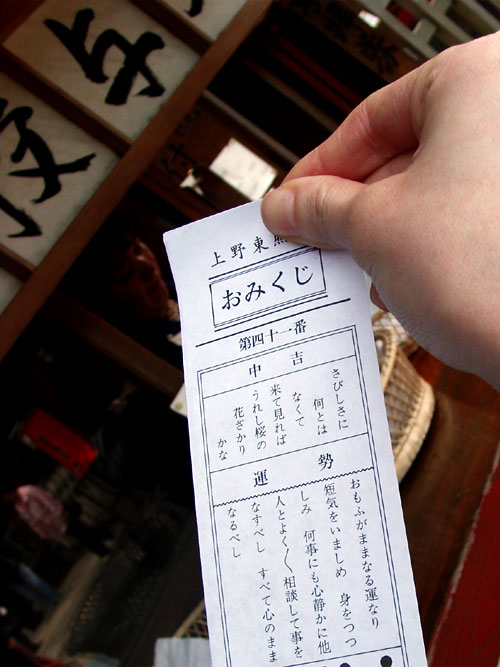 上野東照
おみくじ
第四十一番
中吉
さびしさに
何とは
なくて
来て見れば
うれし桜の
花ざかり
かな
運勢
おもふがままなる運なり
短気をいましめ 身をつつ
しみ 何事にも心静かに他
人とよく〱相談して事を
なすべし すべて心のまま
なるべし
授与